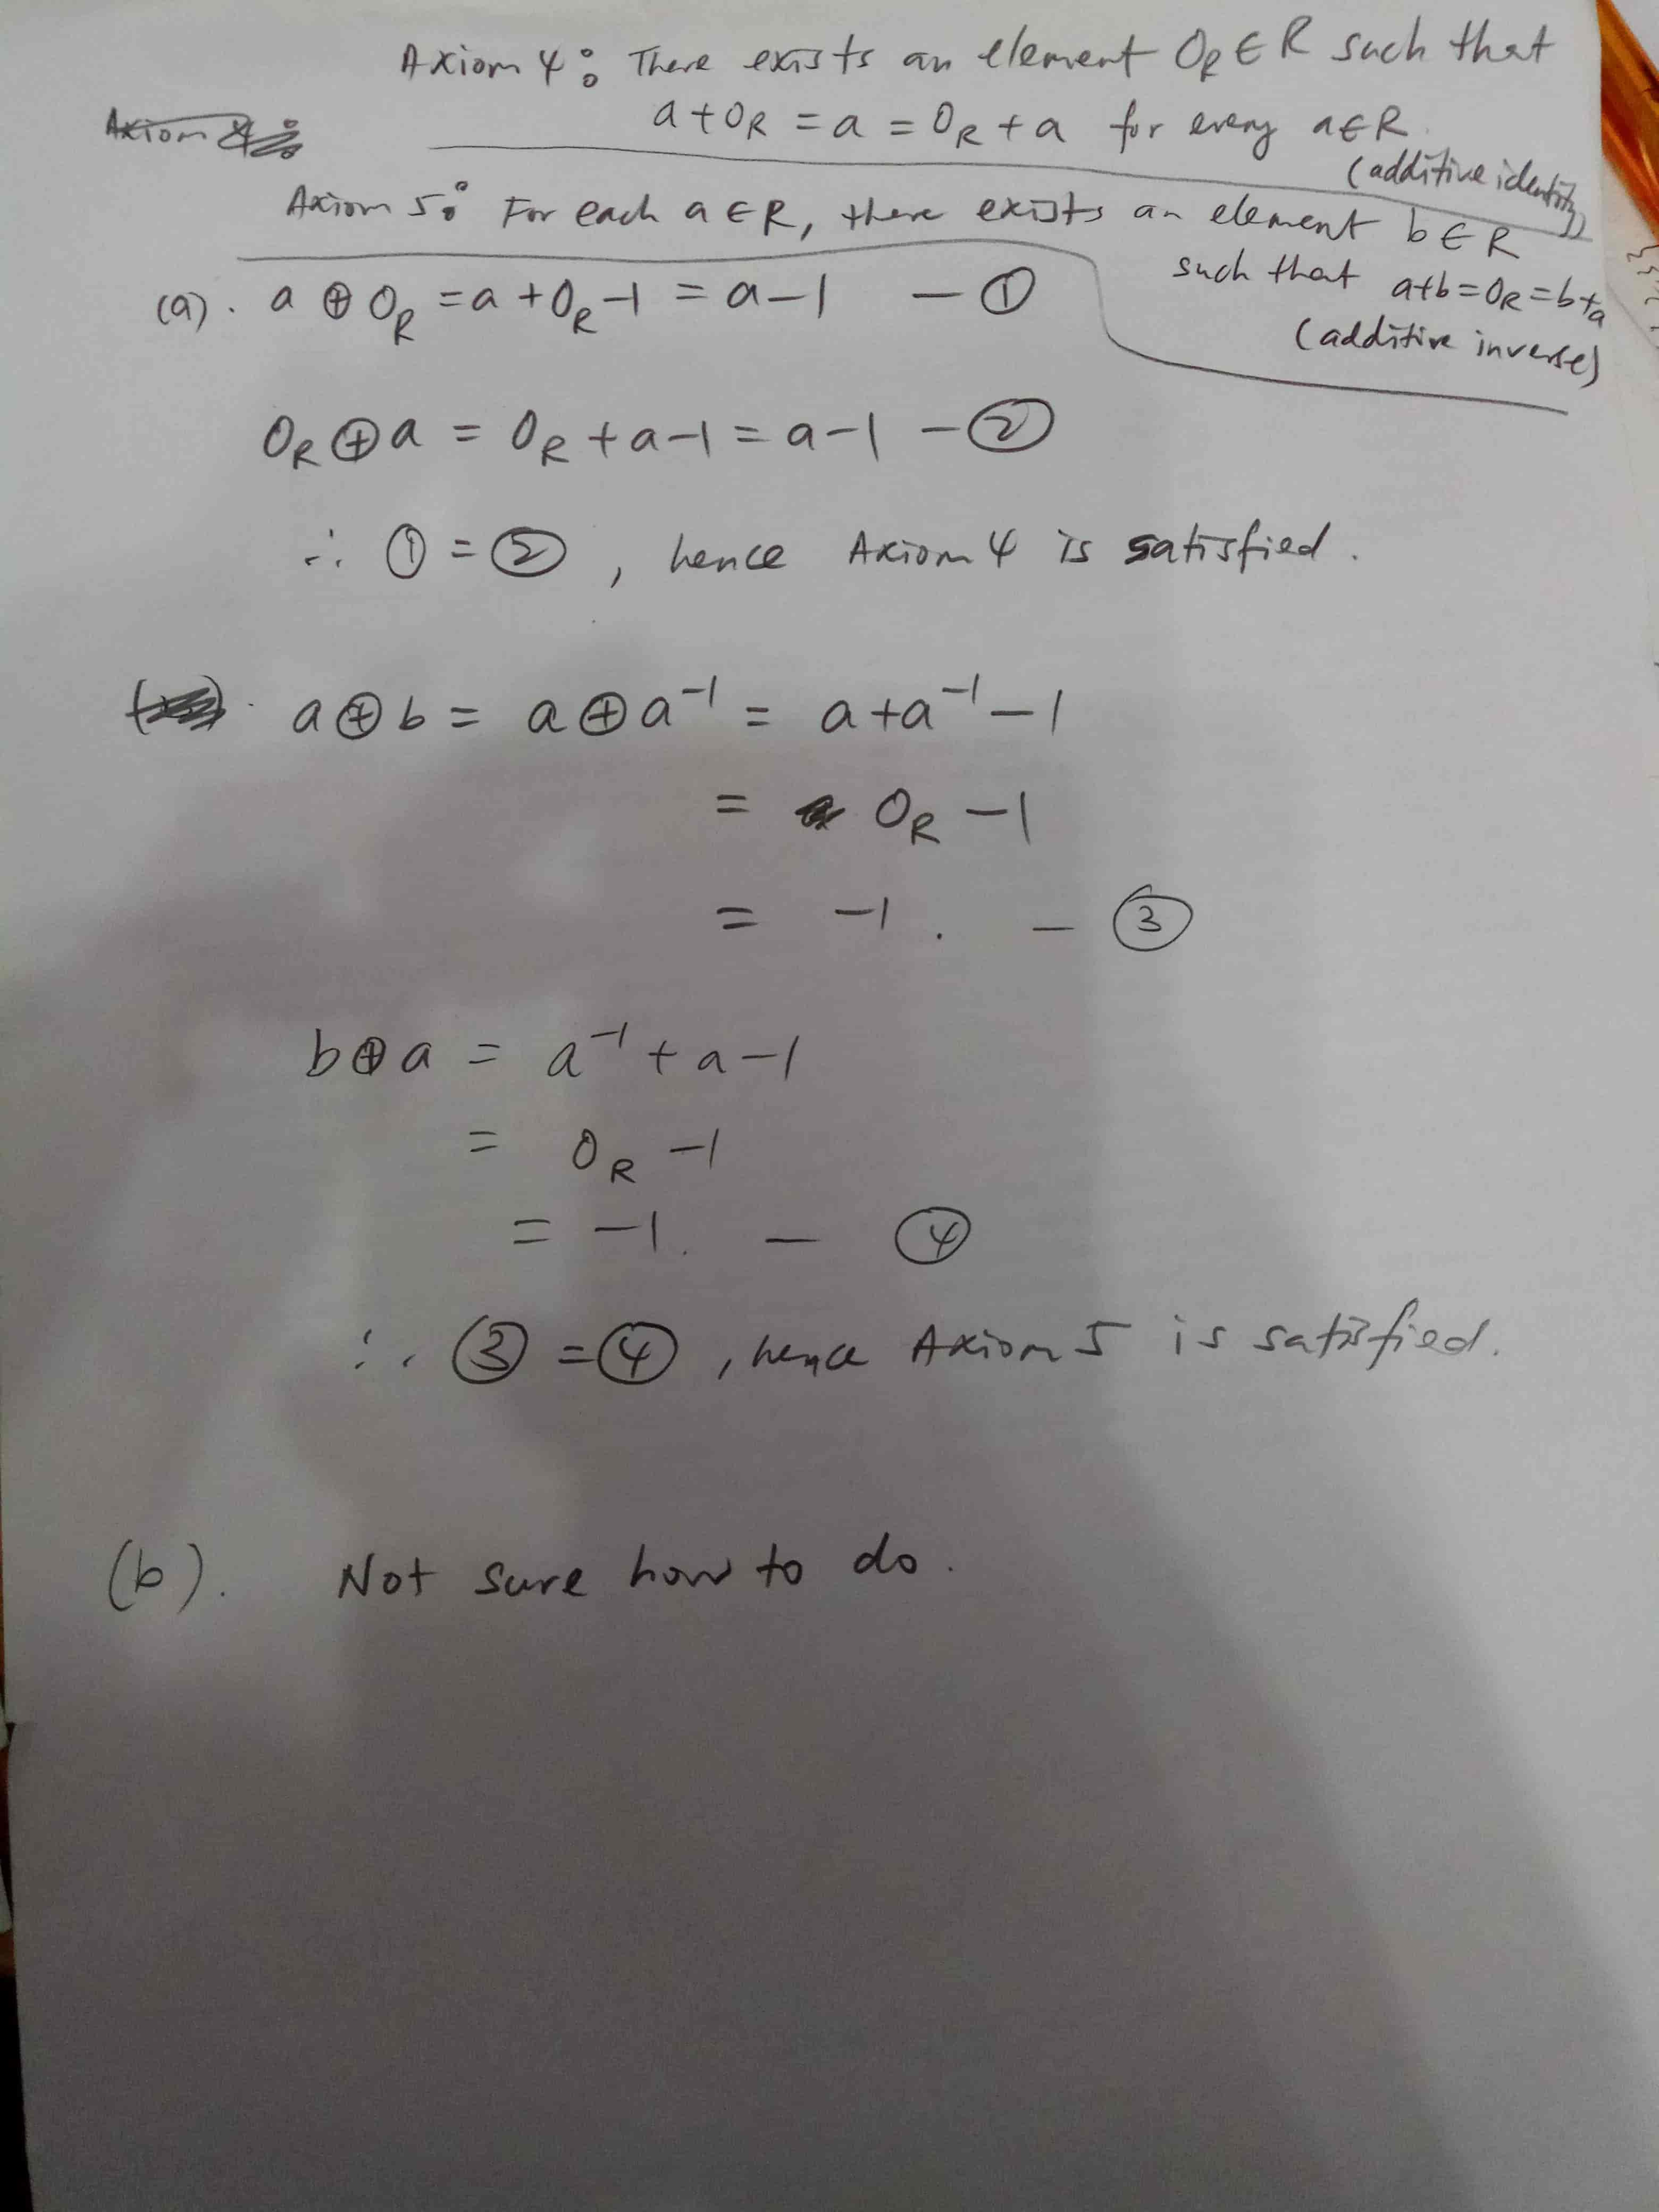 Axiom 4: There exists an element 0_R ∈ R such that
a + 0_R = a = 0_R + a for every a ∈ R.
(additive identity)
Axiom 4:
Axiom 5: For each a ∈ R, there exists an element b ∈ R
such that a+b = 0_R = b+a
(additive inverse)
(a). a ⊕ 0_R = a + 0_R - 1 = a - 1 — ①
0_R ⊕ a = 0_R + a - 1 = a - 1 — ②
∴ ① = ②, hence Axiom 4 is satisfied.
a ⊕ b = a ⊕ a⁻¹ = a + a⁻¹ - 1
= 0_R - 1
= -1. — ③
b ⊕ a = a⁻¹ + a - 1
= 0_R - 1
= -1. — ④
∴ ③ = ④, hence Axiom 5 is satisfied.
(b). Not sure how to do.